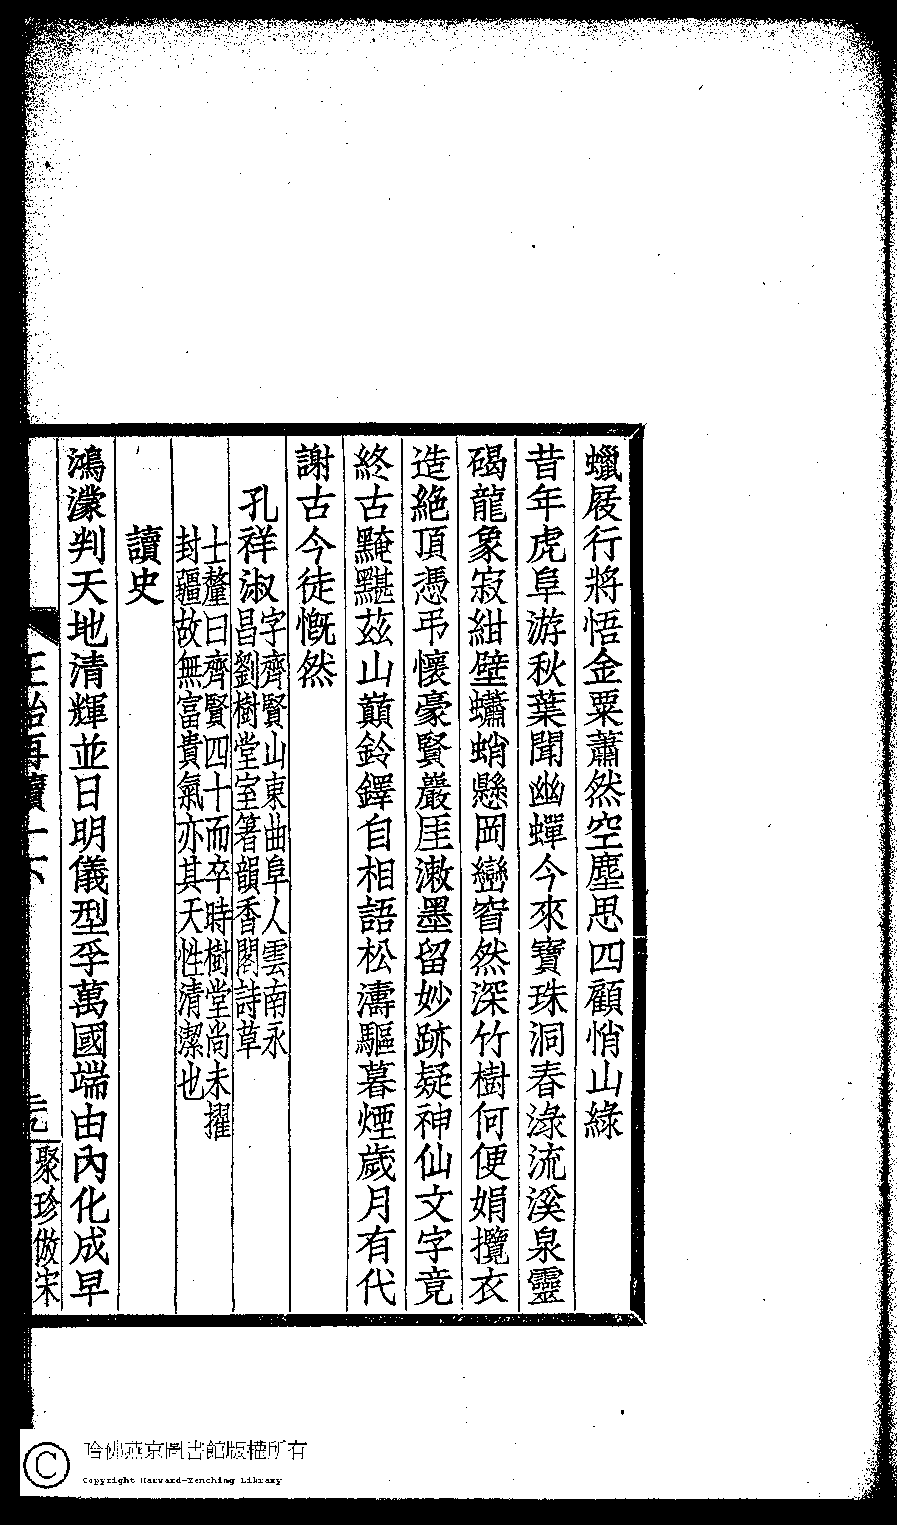 蠟屐行將悟金粟蕭然空塵思四顧悄山綠
昔年虎阜游秋葉聞幽蟬今來寶珠洞春淥流溪泉靈
碣龍象寂紺壁蠨蛸懸岡巒窅然深竹樹何便娟攬衣
造絕頂憑弔懷豪賢巖厓漱墨留妙跡疑神仙文字竟
終古黤黮茲山巔鈴鐸自相語松濤驅暮煙歲月有代
謝古今徒慨然
孔祥淑
字齊賢山東曲阜人雲南永
昌劉樹堂室箸韻香閣詩草
士釐曰齊賢四十而卒時樹堂尚未擢
封疆故無富貴氣亦其天性清潔也
讀史
鴻濛判天地清輝並日明儀型孚萬國端由內化成早
正始再續十下
聚珍倣宋
哈佛燕京圖書館版權所有
Copyright Harvard-Yenching Library